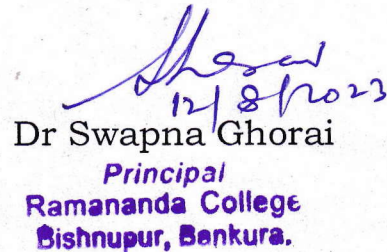 12/8/2023
Dr Swapna Ghorai
Principal
Ramananda College
Bishnupur, Bankura.